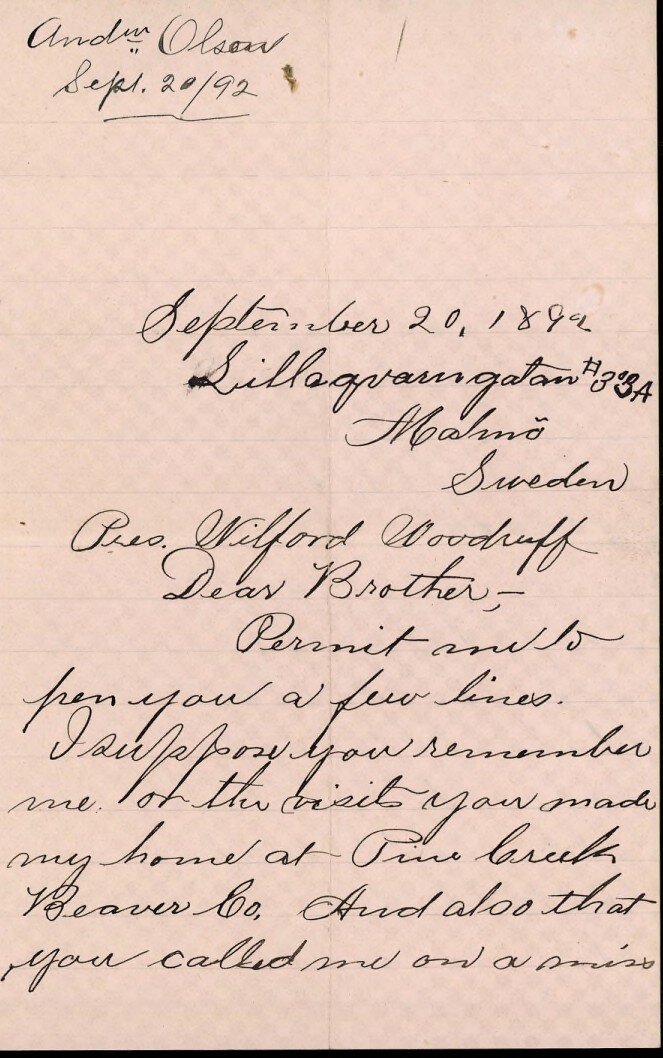 Andw Olson
Sept. 20/92
September 20, 1892
Lillaqvarngatan #33A
Malmö
Sweden
Pres. Wilford Woodruff
Dear Brother,—
Permit me to
pen you a few lines.
I suppose you remember
me. or the visits you made
my home at Pine Creek
Beaver Co. And also that
you called me on a miss